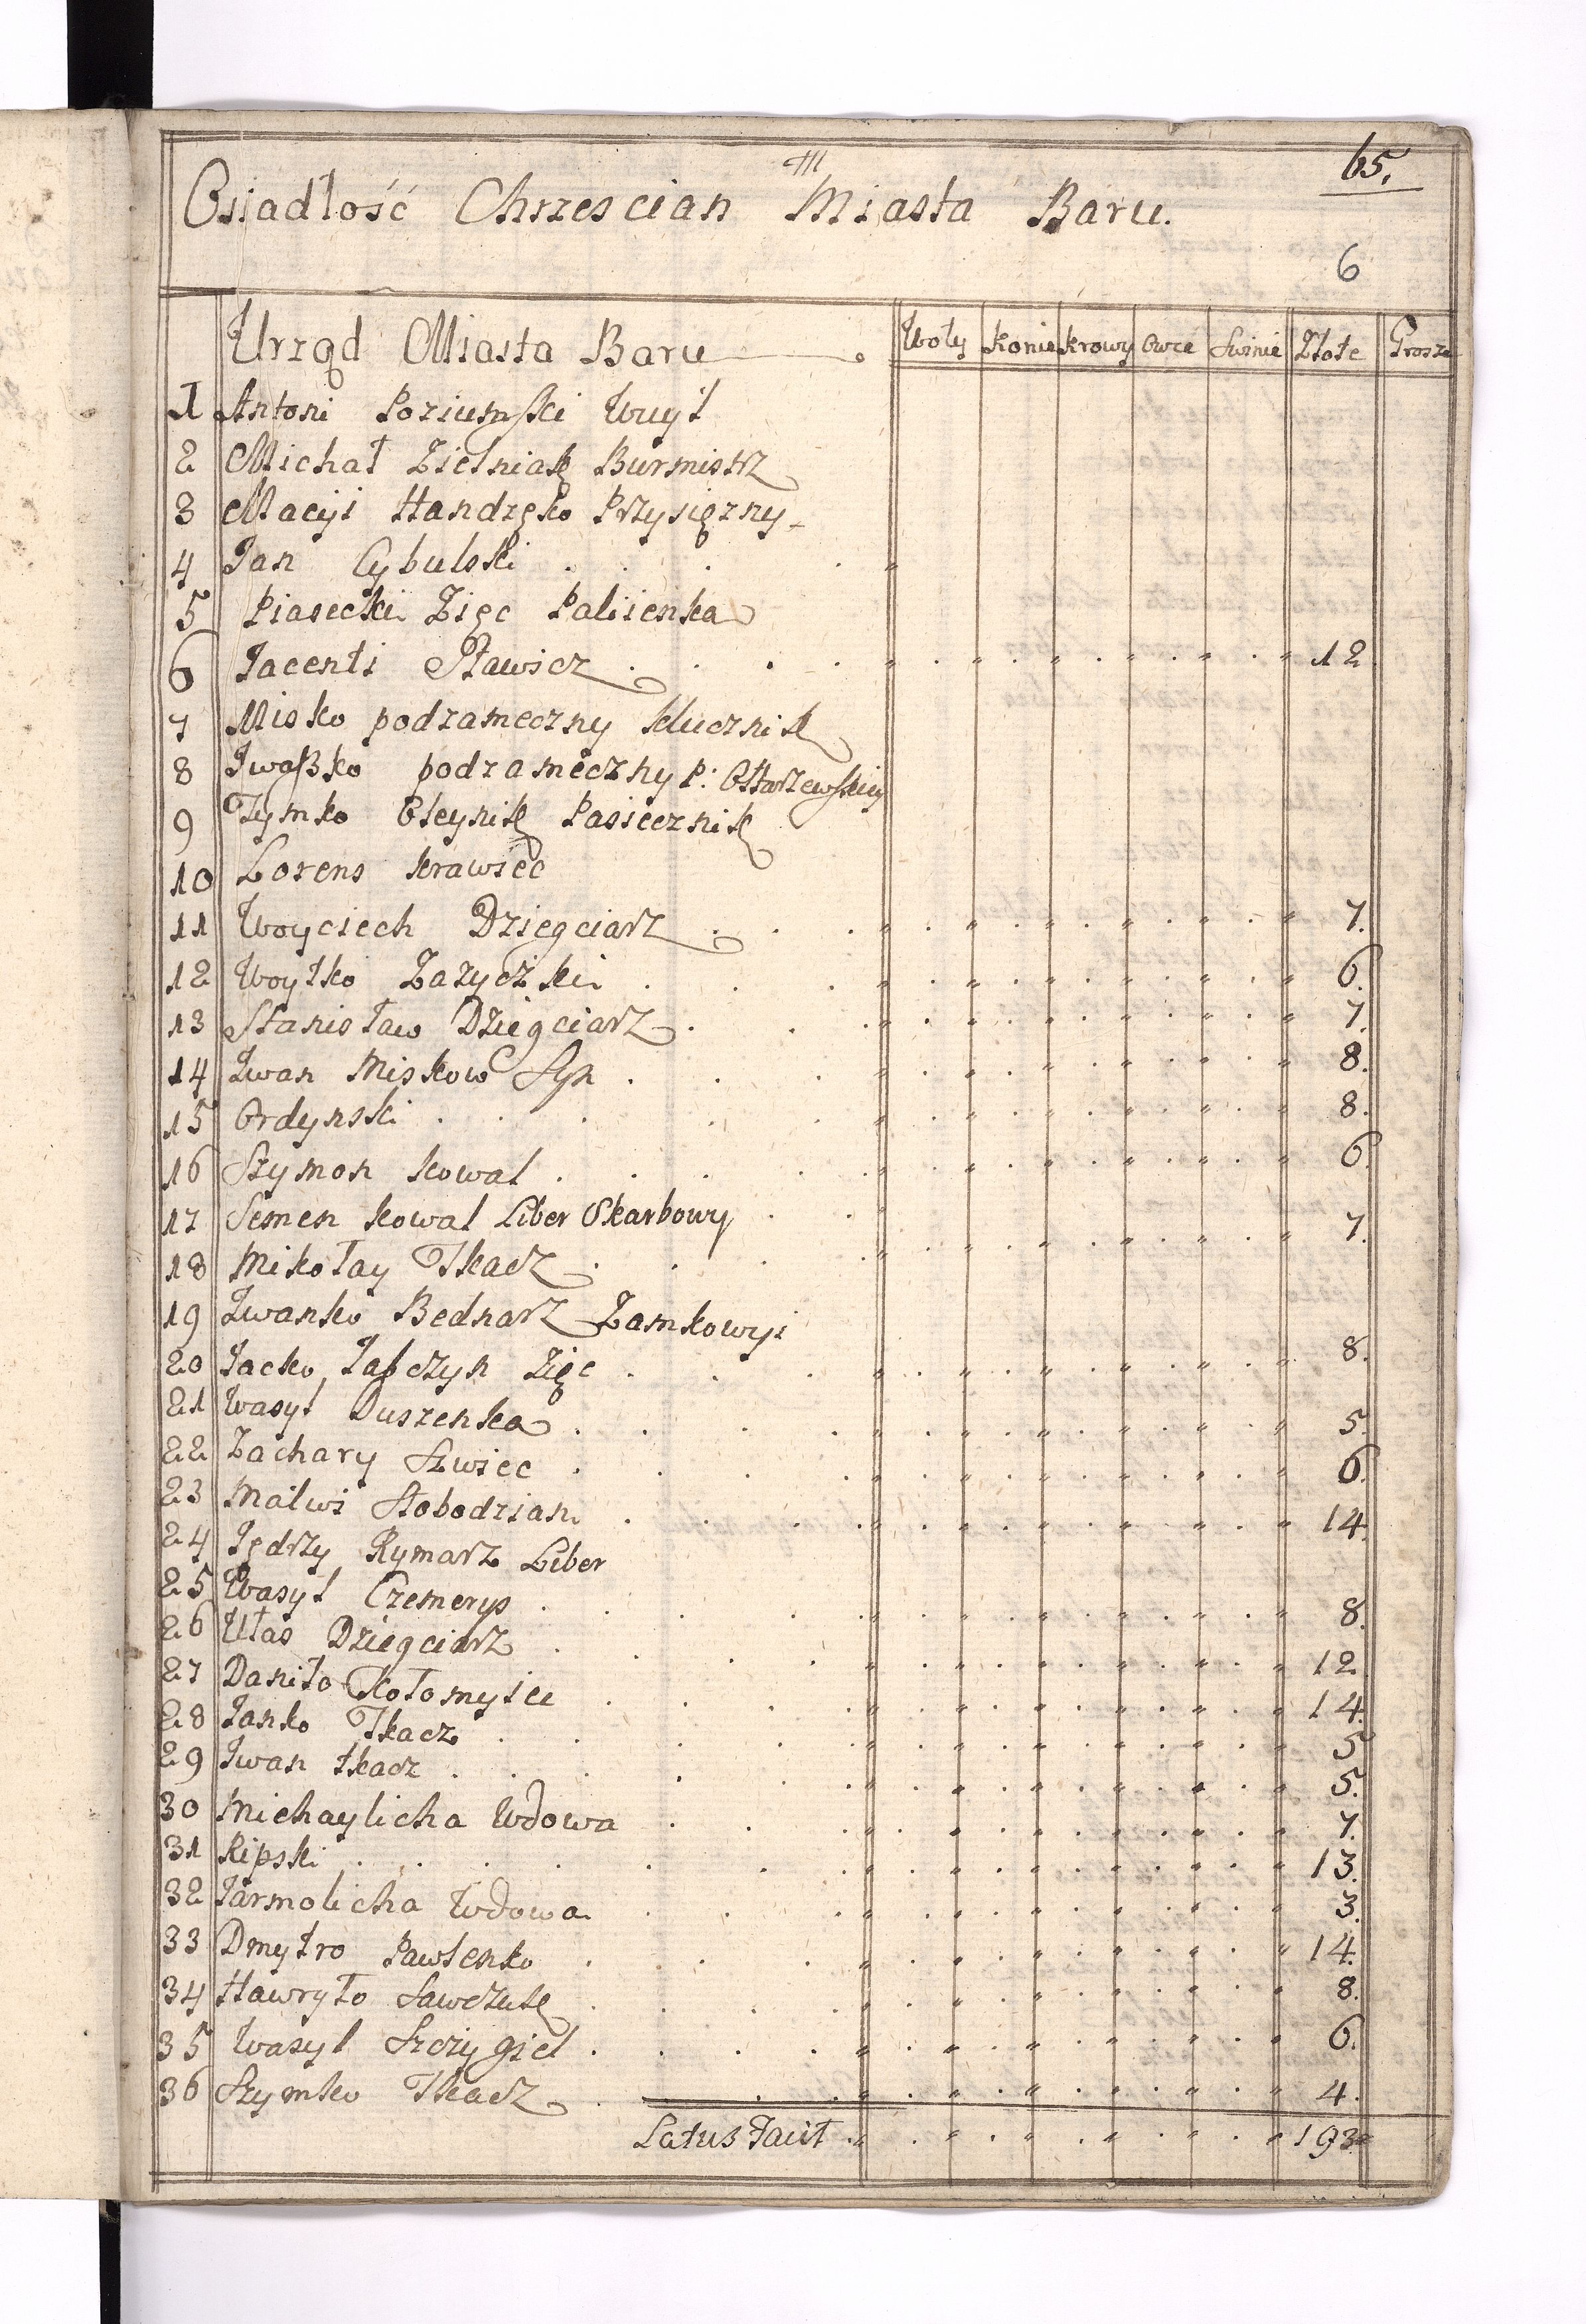 65.
Osiadłość Chrzescian Miasta Baru.
6
Urząd Miasta Baru Woły Konie Krowy Owce Swinie Złote Grosze
1 Antoni Poziumski Wuyt
2 Michał Zielniak Burmistrz
3 Maciji Handzeko Przysięzny
4 Jan Cybulski
5 Piasecki Zięc Palijenka
6 Jacenti Sławicz 12
7 Misko podzameczny Klucznik
8 Iwaszko podzameczny P:
9 Tymko Oleynik Pasiecznik
10 Lorens Krawiec
11 Woyciech Dziegciarz 7.
12 Woytko Zazyczki 6.
13 Stanisław Dziegciarz 7.
14 Iwan Miskow Syn 8.
15 Ordynski 8.
16 Szymon Kowal 6.
17 Semen Kowal Liber Skarbowy
18 Mikołay Tkacz 7.
19 Iwanko Bednarz Zamkowyi
20 Jacko Zięc 8.
21 Wasyl Duszenka 5.
22 Zachary Szwiec 6.
23 Matwi Słobodzian 14.
24 Jędrzy Rymarz Liber
25 Wasyl Czemerys 8.
26 Ułas Dziegciarz 12.
27 Daniło Kołomyici 14.
28 Janko Tkacz 5
29 Iwan tkacz 5.
30 Michaylicha Wdowa 7.
31 Kipski 13.
32 Jarmolicha Wdowa 3.
33 Dmytro Pawlenko 14.
34 Hawryło Sawczuk 8.
35 Wasyl Szczygieł 6.
36 Szymko Tkacz 4.
Latus Facit 193